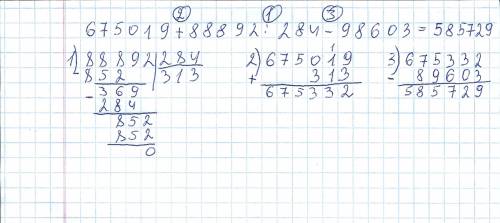 ② ① ③
675019+88892:284-98603=585729
1) 88892 | 284
- 852 | 313
- 369
284
852
852
0
2) 675019
+ 313
675332
3) 675332
- 89603
585729